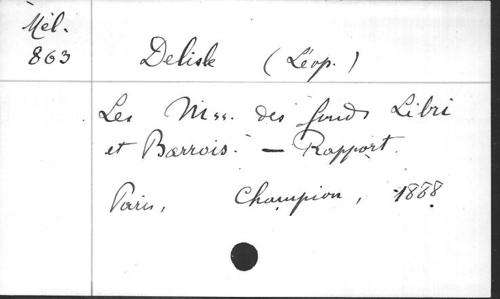 Mél.
863
Delisle (Léop.)
Les Mss. des fonds Libri
et Barrois. — Rapport.
Paris, Champion, 1888.